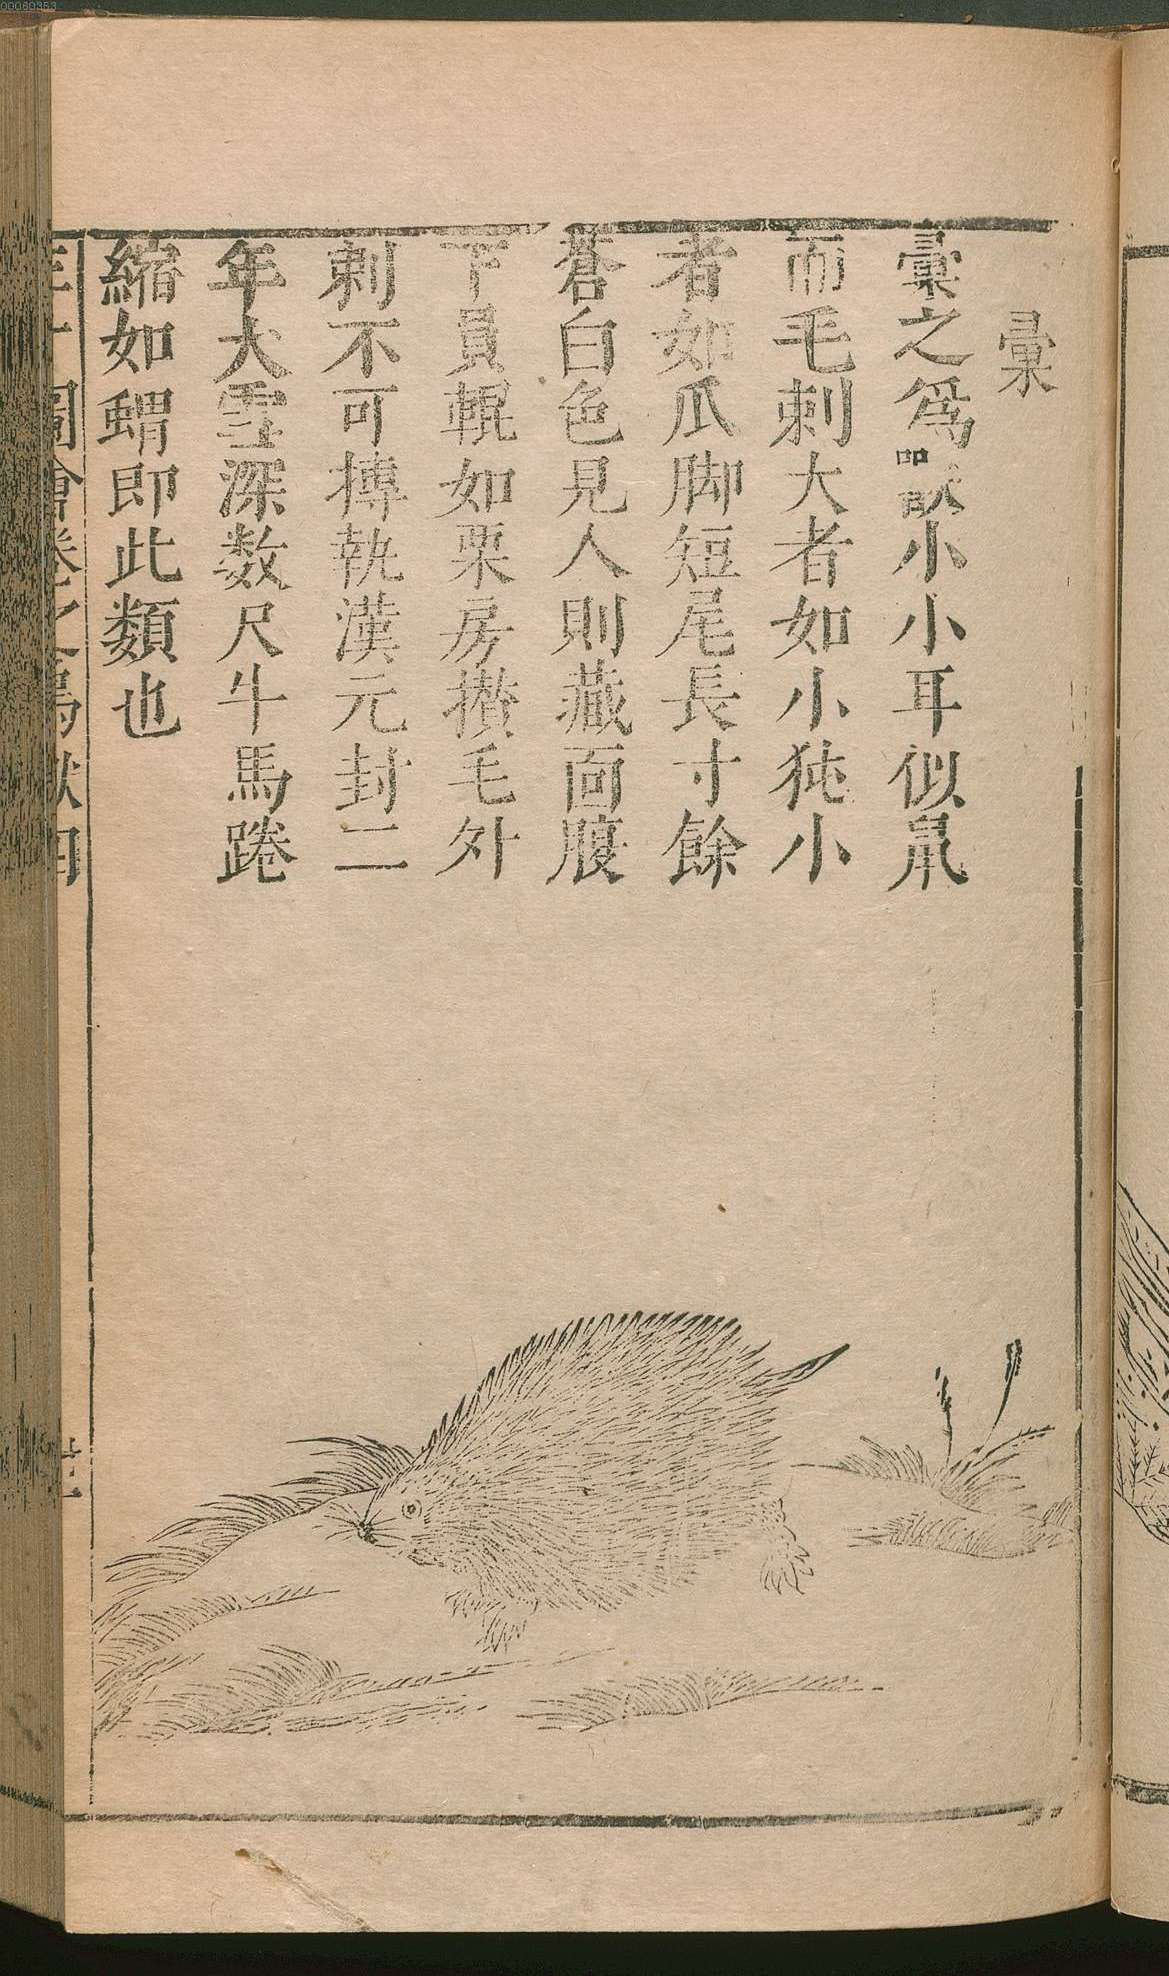 00060353
彚
彚之爲獸小小耳似鼠
而毛刺大者如小㹠小
者如瓜脚短尾長寸餘
蒼白色見人則藏面腹
下員輥如栗房攢毛外
刺不可摶執漢元封二
年大雪深数尺牛馬踡
縮如蝟即此類也
圖會卷之鳥獸四